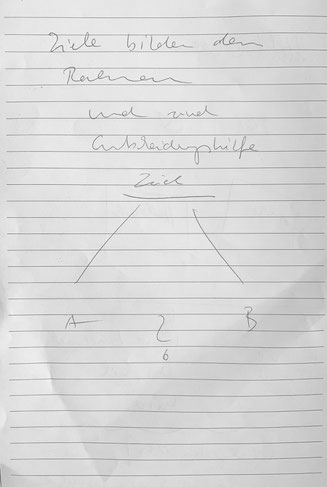 Ziele bilden den
Rahmen
und sind
Entscheidungshilfe
Ziel
A B
6